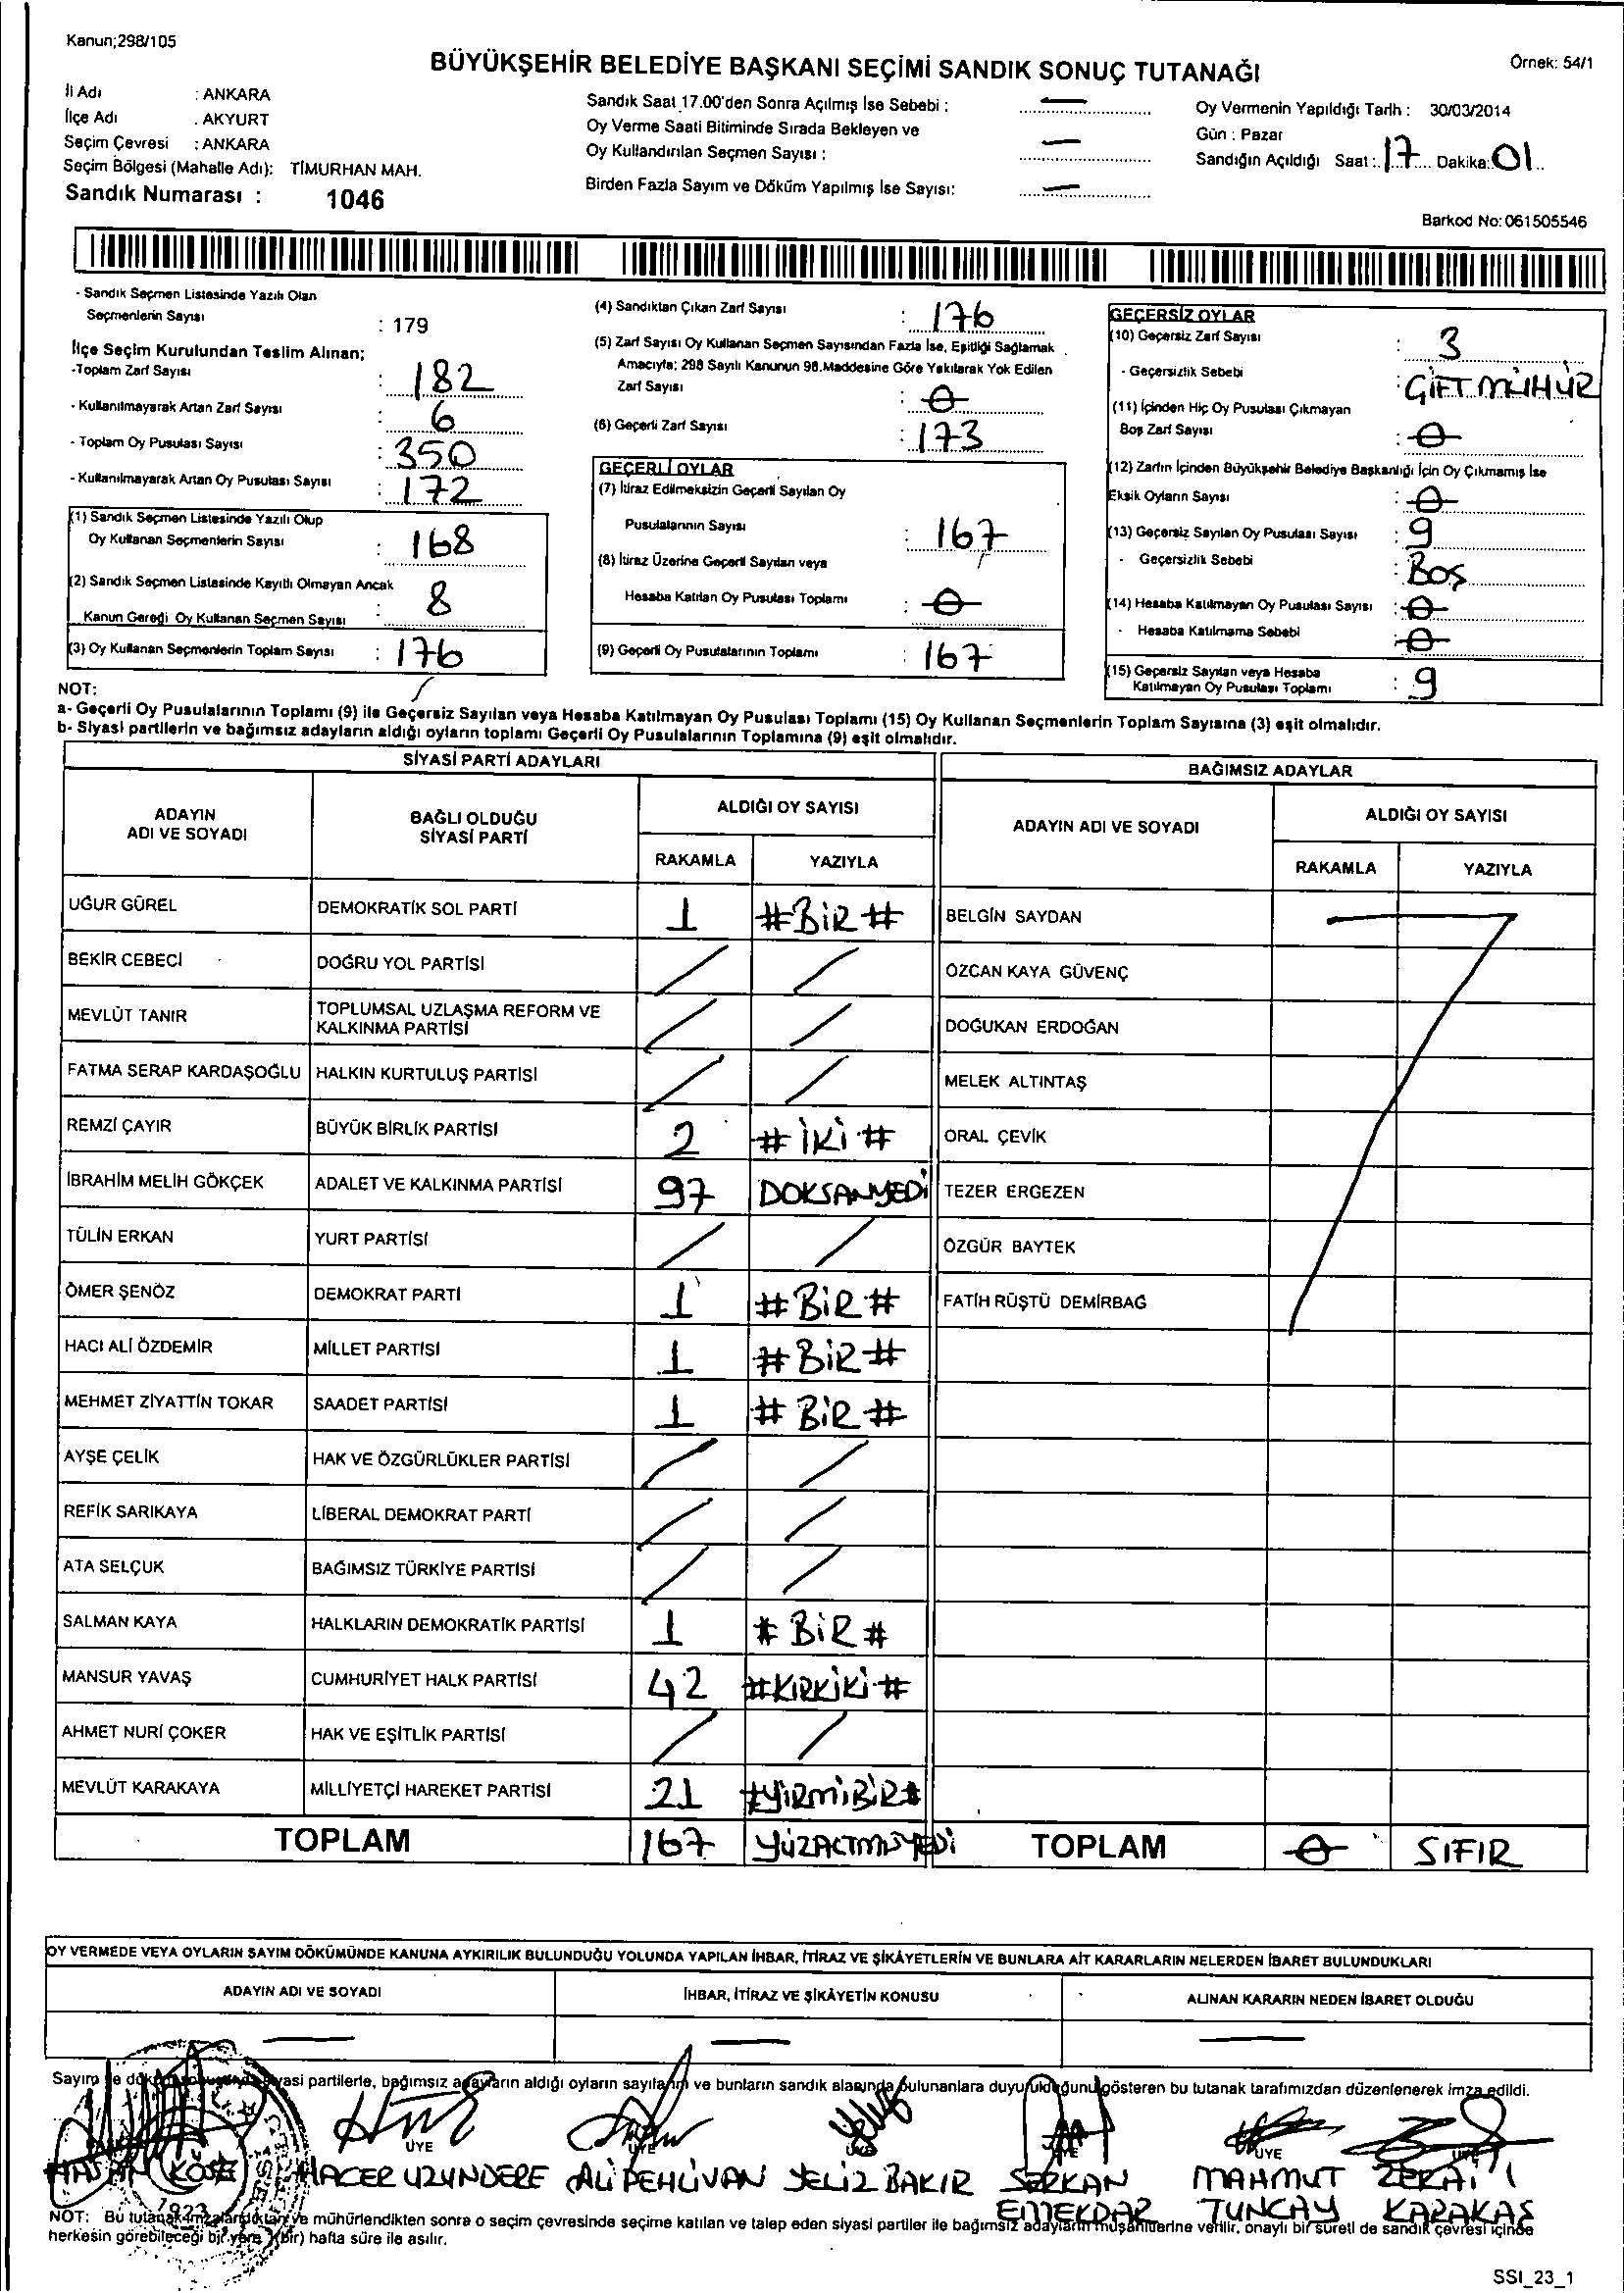 Kanun;298/105
BÜYÜKŞEHİR BELEDİYE BAŞKANI SEÇİMİ SANDIK SONUÇ TUTANAĞI
Örnek: 54/1
İl Adı : ANKARA
İlçe Adı . AKYURT
Seçim Çevresi : ANKARA
Seçim Bölgesi (Mahalle Adı): TİMURHAN MAH.
Sandık Numarası : 1046
Sandık Saat 17.00'den Sonra Açılmış İse Sebebi : —
Oy Verme Saati Bitiminde Sırada Bekleyen ve
Oy Kullandırılan Seçmen Sayısı : —
Birden Fazla Sayım ve Döküm Yapılmış İse Sayısı: —
Oy Vermenin Yapıldığı Tarih : 30/03/2014
Gün : Pazar
Sandığın Açıldığı Saat : 17 Dakika: 01
Barkod No: 061505546
- Sandık Seçmen Listesinde Yazılı Olan
Seçmenlerin Sayısı : 179
İlçe Seçim Kurulundan Teslim Alınan;
-Toplam Zarf Sayısı : 182
- Kullanılmayarak Artan Zarf Sayısı : 6
- Toplam Oy Pusulası Sayısı : 350
- Kullanılmayarak Artan Oy Pusulası Sayısı : 172
(1) Sandık Seçmen Listesinde Yazılı Olup
Oy Kullanan Seçmenlerin Sayısı : 168
(2) Sandık Seçmen Listesinde Kayıtlı Olmayan Ancak
Kanun Gereği Oy Kullanan Seçmen Sayısı : 8
(3) Oy Kullanan Seçmenlerin Toplam Sayısı : 176
(4) Sandıktan Çıkan Zarf Sayısı : 176
(5) Zarf Sayısı Oy Kullanan Seçmen Sayısından Fazla İse, Eşitliği Sağlamak
Amacıyla; 298 Sayılı Kanunun 98.Maddesine Göre Yakılarak Yok Edilen
Zarf Sayısı : 0
(6) Geçerli Zarf Sayısı : 173
GEÇERLİ OYLAR
(7) İtiraz Edilmeksizin Geçerli Sayılan Oy
Pusulalarının Sayısı : 167
(8) İtiraz Üzerine Geçerli Sayılan veya
Hesaba Katılan Oy Pusulası Toplamı : 0
(9) Geçerli Oy Pusulalarının Toplamı : 167
GEÇERSİZ OYLAR
(10) Geçersiz Zarf Sayısı : 3
- Geçersizlik Sebebi : ÇİFT MÜHÜR
(11) İçinden Hiç Oy Pusulası Çıkmayan
Boş Zarf Sayısı : 0
(12) Zarfın İçinden Büyükşehir Belediye Başkanlığı İçin Oy Çıkmamış İse
Eksik Oyların Sayısı : 0
(13) Geçersiz Sayılan Oy Pusulası Sayısı : 9
- Geçersizlik Sebebi : BOŞ
(14) Hesaba Katılmayan Oy Pusulası Sayısı : 0
- Hesaba Katılmama Sebebi : 0
(15) Geçersiz Sayılan veya Hesaba
Katılmayan Oy Pusulası Toplamı : 9
NOT:
a- Geçerli Oy Pusulalarının Toplamı (9) ile Geçersiz Sayılan veya Hesaba Katılmayan Oy Pusulası Toplamı (15) Oy Kullanan Seçmenlerin Toplam Sayısına (3) eşit olmalıdır.
b- Siyasi partilerin ve bağımsız adayların aldığı oyların toplamı Geçerli Oy Pusulalarının Toplamına (9) eşit olmalıdır.
SİYASİ PARTİ ADAYLARI
BAĞIMSIZ ADAYLAR
ADAYIN ADI VE SOYADI
BAĞLI OLDUĞU SİYASİ PARTİ
ALDIĞI OY SAYISI
RAKAMLA YAZIYLA
ADAYIN ADI VE SOYADI
ALDIĞI OY SAYISI
RAKAMLA YAZIYLA
UĞUR GÜREL DEMOKRATİK SOL PARTİ 1 #BİR# BELGİN SAYDAN
BEKİR CEBECİ DOĞRU YOL PARTİSİ / / ÖZCAN KAYA GÜVENÇ
MEVLÜT TANIR TOPLUMSAL UZLAŞMA REFORM VE KALKINMA PARTİSİ / / DOĞUKAN ERDOĞAN
FATMA SERAP KARDAŞOĞLU HALKIN KURTULUŞ PARTİSİ / / MELEK ALTINTAŞ
REMZİ ÇAYIR BÜYÜK BİRLİK PARTİSİ 2 #İKİ# ORAL ÇEVİK
İBRAHİM MELİH GÖKÇEK ADALET VE KALKINMA PARTİSİ 97 DOKSANYEDİ TEZER ERGEZEN
TÜLİN ERKAN YURT PARTİSİ / / ÖZGÜR BAYTEK
ÖMER ŞENÖZ DEMOKRAT PARTİ 1 #BİR# FATİH RÜŞTÜ DEMİRBAĞ
HACI ALİ ÖZDEMİR MİLLET PARTİSİ 1 #BİR#
MEHMET ZİYATTİN TOKAR SAADET PARTİSİ 1 #BİR#
AYŞE ÇELİK HAK VE ÖZGÜRLÜKLER PARTİSİ / /
REFİK SARIKAYA LİBERAL DEMOKRAT PARTİ / /
ATA SELÇUK BAĞIMSIZ TÜRKİYE PARTİSİ / /
SALMAN KAYA HALKLARIN DEMOKRATİK PARTİSİ 1 #BİR#
MANSUR YAVAŞ CUMHURİYET HALK PARTİSİ 42 #KIRKİKİ#
AHMET NURİ ÇOKER HAK VE EŞİTLİK PARTİSİ / /
MEVLÜT KARAKAYA MİLLİYETÇİ HAREKET PARTİSİ 21 #YİRMİBİR#
TOPLAM 167 YÜZALTMIŞYEDİ TOPLAM 0 SIFIR
OY VERMEDE VEYA OYLARIN SAYIM DÖKÜMÜNDE KANUNA AYKIRILIK BULUNDUĞU YOLUNDA YAPILAN İHBAR, İTİRAZ VE ŞİKÂYETLERİN VE BUNLARA AİT KARARLARIN NELERDEN İBARET BULUNDUKLARI
ADAYIN ADI VE SOYADI İHBAR, İTİRAZ VE ŞİKÂYETİN KONUSU ALINAN KARARIN NEDEN İBARET OLDUĞU
— — —
Sayım ve siyasi partilerle, bağımsız adayların aldığı oyların sayılarını ve bunların sandık alanında bulunanlara duyurulduğunu gösteren bu tutanak tarafımızdan düzenlenerek imza edildi.
ÜYE ÜYE ÜYE
HASAN KÖSE HACER UZUNDERE ALİ PEHLİVAN YELİZ BAKIR SERKAN EMEKDAR MAHMUT TUNCAY ZEKAİ KARAKAŞ
1923
NOT: Bu tutanak imzalandıktan ve mühürlendikten sonra o seçim çevresinde seçime katılan ve talep eden siyasi partiler ile bağımsız adayların müşahitlerine verilir, onaylı bir sureti de sandık çevresi içinde
herkesin görebileceği bir yere (bir) hafta süre ile asılır.
SSI_23_1